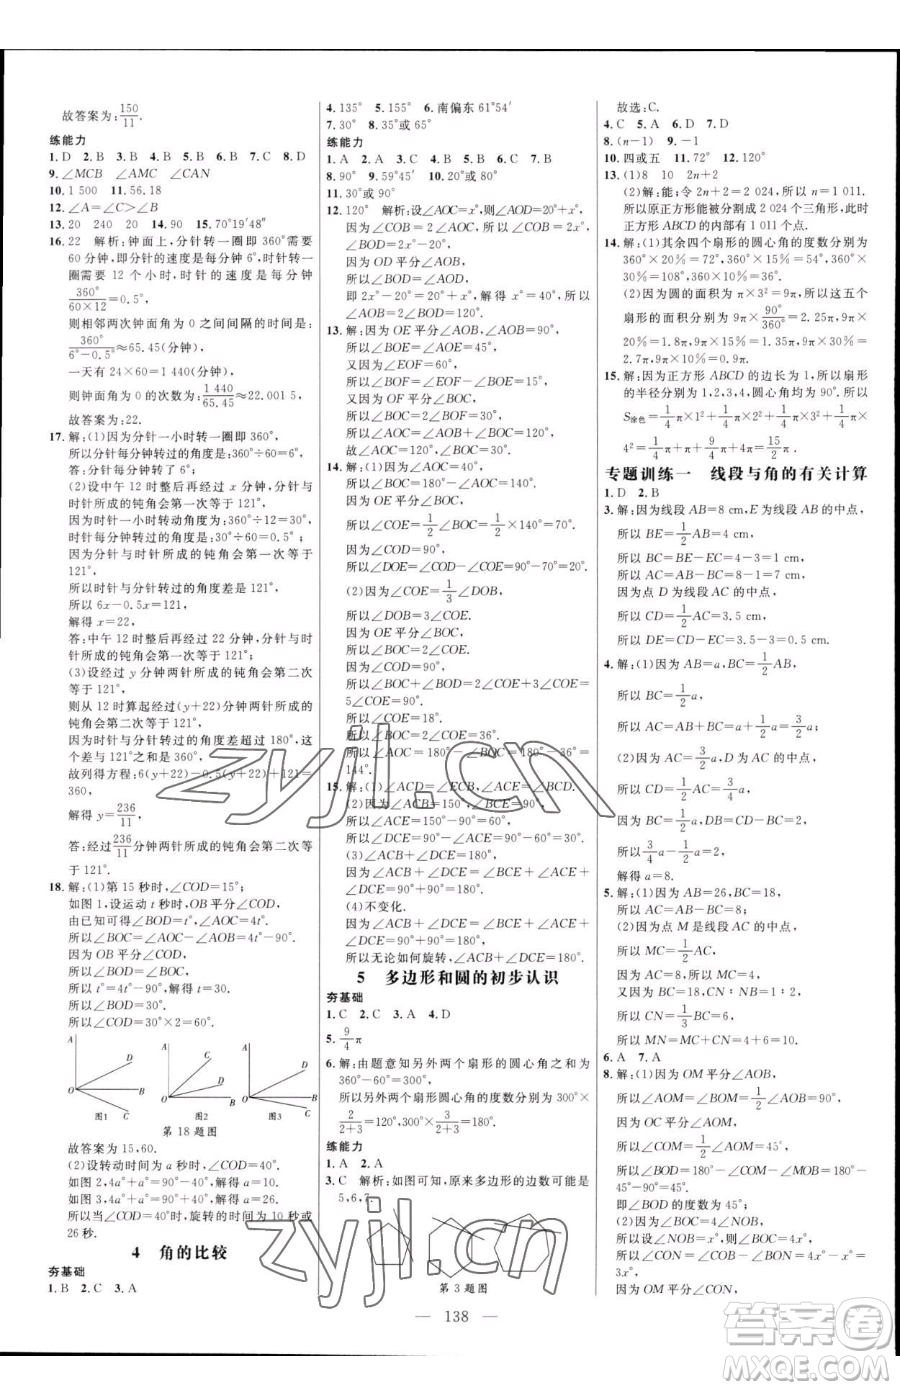 故答案为:150/11.
练能力
1. D  2. B  3. B  4. B  5. B  6. B  7. C  8. D
9. ∠MCB  ∠AMC  ∠CAN
10. 1 500  11. 56.18
12. ∠A=∠C>∠B
13. 20  240  20  14. 90  15. 70°19′48″
16. 22  解析:钟面上,分针转一圈即360°需要
60分钟,即分针的速度是每分钟6°,时针转一
圈需要12个小时,时针的速度是每分钟
360°/(60×12)=0.5°,
则相邻两次钟面角为0之间间隔的时间是:
360°/(6°-0.5°)≈65.45(分钟),
一天有24×60=1 440(分钟),
则钟面角为0的次数为:1 440/65.45≈22.001 5,
故答案为:22.
17. 解:(1)因为分针一小时转一圈即360°,
所以分针每分钟转过的角度为:360°÷60=6°.
答:分针每分钟转了6度.
(2)设中午12时整后再经过x分钟,分针与时
针所成的钝角会第一次等于121°,
因为时针一小时转动角度为:360°÷12=30°,
时针每分钟转过的角度为:30°÷60=0.5°,
因为分针与时针所成的钝角会第一次等于
121°,
所以时针与分针转过的角度差是121°,
所以6x-0.5x=121,
解得x=22,
答:中午12时整后再经过22分钟,分针与时
针所成的钝角会第一次等于121°.
(3)设经过y分钟两针所成的钝角会第二次
等于121°,
则从12时算起经过(y+22)分钟两针所成的
钝角会第二次等于121°,
因为时针与分针转过的角度差超过180°,这
个差与121°之和是360°,
故列得方程:6(y+22)-0.5(y+22)+121=
360,
解得y=236/11,
答:经过236/11分钟两针所成的钝角会第二次等
于121°.
18. 解:(1)第15秒时,∠COD=15°;
如图1,设运动t秒时,OB平分∠COD,
由已知可得∠BOD=t°,∠AOC=4t°,
所以∠BOC=∠AOC-∠AOB=4t°-90°.
因为OB平分∠COD,
所以∠BOD=∠BOC,
所以t°=4t°-90°,解得t=30,
所以∠BOD=30°,
所以∠COD=30°×2=60°.
A D O B C 图1
A C D O B 图2
A D O B C 图3
第18题图
故答案为15,60.
(2)设转动时间为a秒时,∠COD=40°.
如图2,4a°+a°=90°-40°,解得a=10,
如图3,4a°+a°=90°+40°,解得a=26.
所以当∠COD=40°时,旋转的时间为10秒或
26秒.
4  角的比较
夯基础
1. B  2. C  3. A
4. 135°  5. 155°  6. 南偏东61°54′
7. 30°  8. 35°或65°
练能力
1. A  2. A  3. C  4. C  5. A  6. B  7. C
8. 90°  9. 59°45′  10. 20°或80°
11. 30°或90°
12. 120°  解析:设∠AOC=x°,则∠AOD=20°+x°,
因为∠COB=2∠AOC,所以∠COB=2x°,
∠BOD=2x°-20°.
因为OD平分∠AOB,
所以∠AOD=∠BOD,
即2x°-20°=20°+x°,解得x°=40°,所以
∠AOB=2∠BOD=120°.
13. 解:因为OE平分∠AOB,∠AOB=90°,
所以∠BOE=∠AOE=45°,
又因为∠EOF=60°,
所以∠BOF=∠EOF-∠BOE=15°,
又因为OF平分∠BOC,
所以∠BOC=2∠BOF=30°,
所以∠AOC=∠AOB+∠BOC=120°,
故∠AOC=120°,∠COB=30°.
14. 解:(1)因为∠AOC=40°,
所以∠BOC=180°-∠AOC=140°,
因为OE平分∠BOC,
所以∠COE=1/2∠BOC=1/2×140°=70°.
因为∠COD=90°,
所以∠DOE=∠COD-∠COE=90°-70°=20°.
(2)因为∠COE=1/3∠DOB,
所以∠DOB=3∠COE.
因为OE平分∠BOC,
所以∠BOC=2∠COE.
因为∠COD=90°,
所以∠BOC+∠BOD=2∠COE+3∠COE=
5∠COE=90°.
所以∠COE=18°.
所以∠BOC=2∠COE=36°,
所以∠AOC=180°-∠BOC=180°-36°=
144°.
15. 解:(1)∠ACD=∠ECB,∠ACE=∠DCB.
(2)因为∠ACB=150°,∠BCE=90°,
所以∠ACE=150°-90°=60°,
所以∠DCE=90°-∠ACE=90°-60°=30°.
(3)∠ACB+∠DCE=180°,
因为∠ACB=∠ACD+∠BCE-∠DCE,
所以∠ACB+∠DCE=∠ACD+∠BCE-
∠DCE+∠DCE=90°+90°=180°.
(4)不变化.
因为∠ACB+∠DCE+∠ACE+∠BCD=
360°,∠ACE+∠BCD=180°,
所以∠ACB+∠DCE=180°,
所以无论如何旋转,∠ACB+∠DCE=180°.
5  多边形和圆的初步认识
夯基础
1. C  2. C  3. A  4. D
5. 9/4π
6. 解:由题意知另外两个扇形的圆心角之和为
360°-60°=300°,
所以另外两个圆心角的度数分别为300°×
2/(2+3)=120°,300°×3/(2+3)=180°.
练能力
1. A  2. A
3. C  解析:如图可知,原来多边形的边数可能是
5,6,7.
第3题图
故选:C.
4. C  5. A  6. D  7. D
8. (n-1)  9. -1
10. 四或五  11. 72°  12. 120°
13. (1)8  10  2n+2
(2)解:能;令2n+2=2 024,所以n=1 011.
所以原正方形能被分割成2 024个三角形,此时正
方形ABCD的内部有1 011个点.
14. 解:(1)其余四个扇形的圆心角的度数分别为
360°×20%=72°,360°×15%=54°,
360°×50%=180°,360°×10%=36°.
(2)因为圆的面积为π×3²=9π,所以这五个
扇形的面积分别为9π×90°/360°=2.25π,9π×
20%=1.8π,9π×15%=1.35π,9π×50%=
4.5π,9π×10%=0.9π.
15. 解:因为正方形ABCD的边长为1,所以扇形
的半径分别为1,2,3,4,圆心角均为90°.所以
S涂色=1/4π×1²+1/4π×2²+1/4π×3²+1/4π×
4²=1/4π+π+9/4π+4π=15/2π.
专题训练一  线段与角的有关计算
1. D  2. B
3. 解:因为线段AB=8 cm,E为线段AB的中点,
所以BE=1/2AB=4 cm,
所以BC=BE-EC=4-3=1 cm,
所以AC=AB-BC=8-1=7 cm,
因为点D为线段AC的中点,
所以CD=1/2AC=3.5 cm,
所以DE=CD-EC=3.5-3=0.5 cm.
4. 解:(1)因为AB=a,BC=1/2AB,
所以BC=1/2a,
所以AC=AB+BC=a+1/2a=3/2a;
(2)因为AC=3/2a,D为AC的中点,
所以CD=1/2AC=3/4a,
因为BC=1/2a,DB=CD-BC=2,
所以3/4a-1/2a=2,
解得a=8.
5. 解:(1)因为AB=26,BC=18,
所以AC=AB-BC=8;
(2)因为点M是线段AC的中点,
所以MC=1/2AC,
所以MC=4,
又因为BC=18,CN∶NB=1∶2,
所以CN=1/3BC=6,
所以MN=MC+CN=4+6=10.
6. A  7. A
8. 解:(1)因为OM平分∠AOB,
所以∠AOM=∠BOM=1/2∠AOB=90°,
因为OC平分∠AOM,
所以∠COM=1/2∠AOM=45°,
所以∠BOD=180°-∠COM-∠MOB=
180°-45°-90°=45°,
即∠BOD的度数为45°;
(2)因为∠AOC=∠NOB,
所以设∠NOB=x°,∠BOC=4x°,
所以∠CON=∠COB-∠BON=4x°-x°=
3x°,
因为OM平分∠CON,
138
zyjl.cn
zyjl.cn
答案圈
MXQE.COM